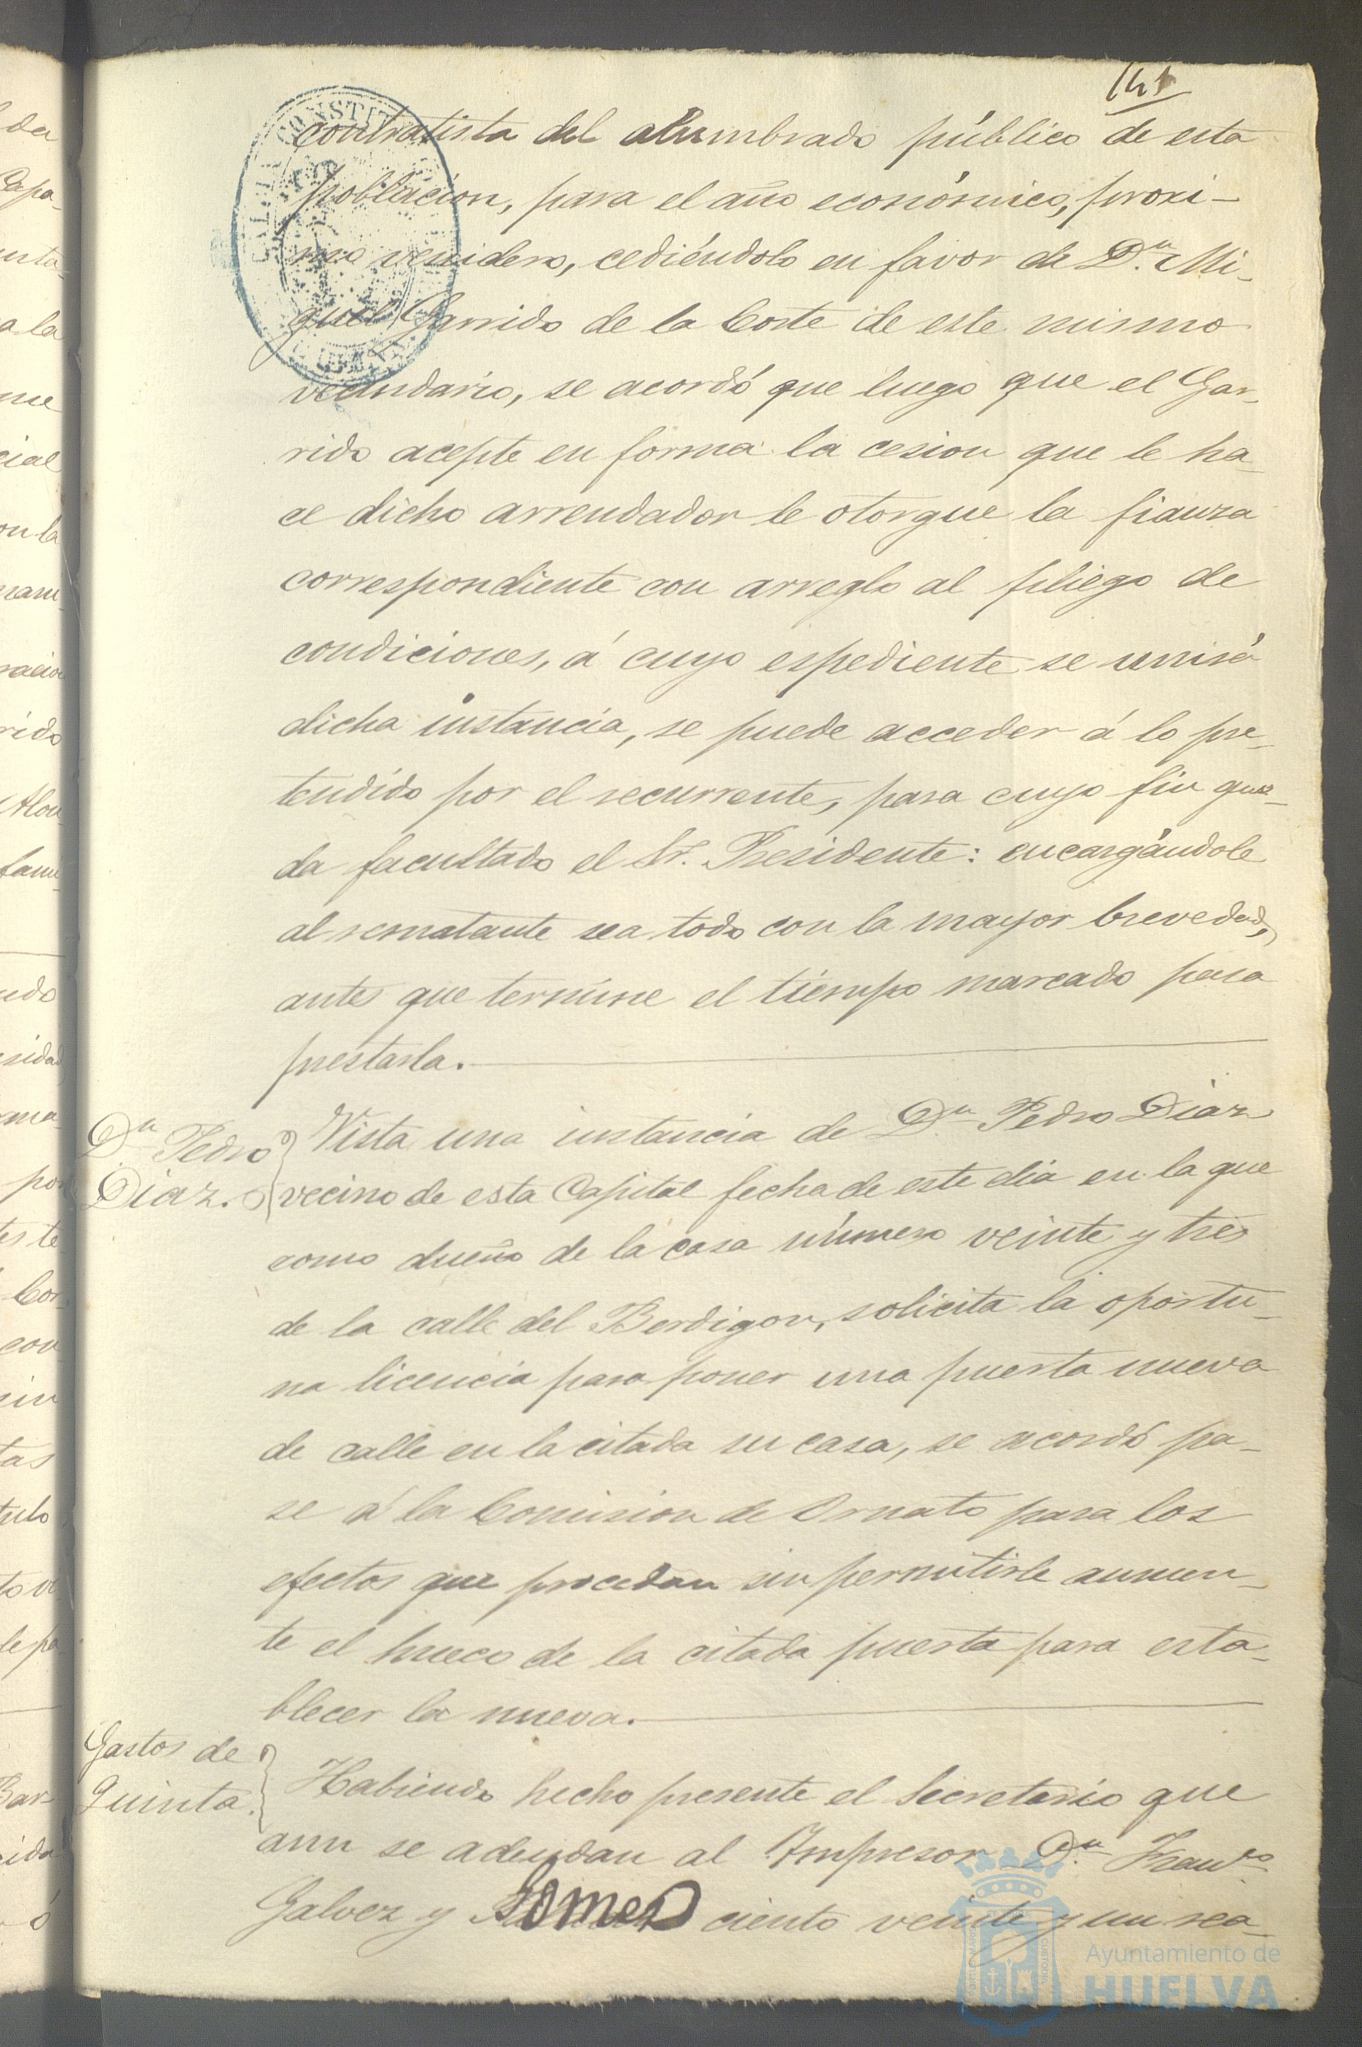 141
contratista del alumbrado público de esta
poblacion, para el año económico, proxi-
mo venidero, cediéndolo en favor de Dn. Mi-
guel Garrido de la Corte de este mismo
vecindario, se acordó que luego que el Gar-
rido acepte en forma la cesion que le ha-
ce dicho arrendador le otorgue la fianza
correspondiente con arreglo al pliego de
condiciones, á cuyo espediente se unirá
dicha instancia, se puede acceder á lo pre-
tendido por el recurrente, para cuyo fin que-
da facultado el Sr. Presidente: encargándole
al rematante sea todo con la mayor brevedad,
antes que termine el tiempo marcado para
prestarla.
Dn Pedro
Diaz.
Vista una instancia de Dn Pedro Diaz
vecino de esta Capital fecha de este dia en la que
como dueño de la casa número veinte y tres
de la calle del Berdigon, solicita la oportu-
na licencia para poner una puerta nueva
de calle en la citada su casa, se acordó pa-
se á la Comision de Ornato para los
efectos que procedan sin permitirle aumen-
te el hueco de la citada puerta para esta-
blecer la nueva.
Gastos de
Quinta.
Habiendo hecho presente el Secretario que
aun se adeudan al Impresor Dn. Franco
Galvez y Gomez ciento veinte y un rea-
Ayuntamiento de
HUELVA